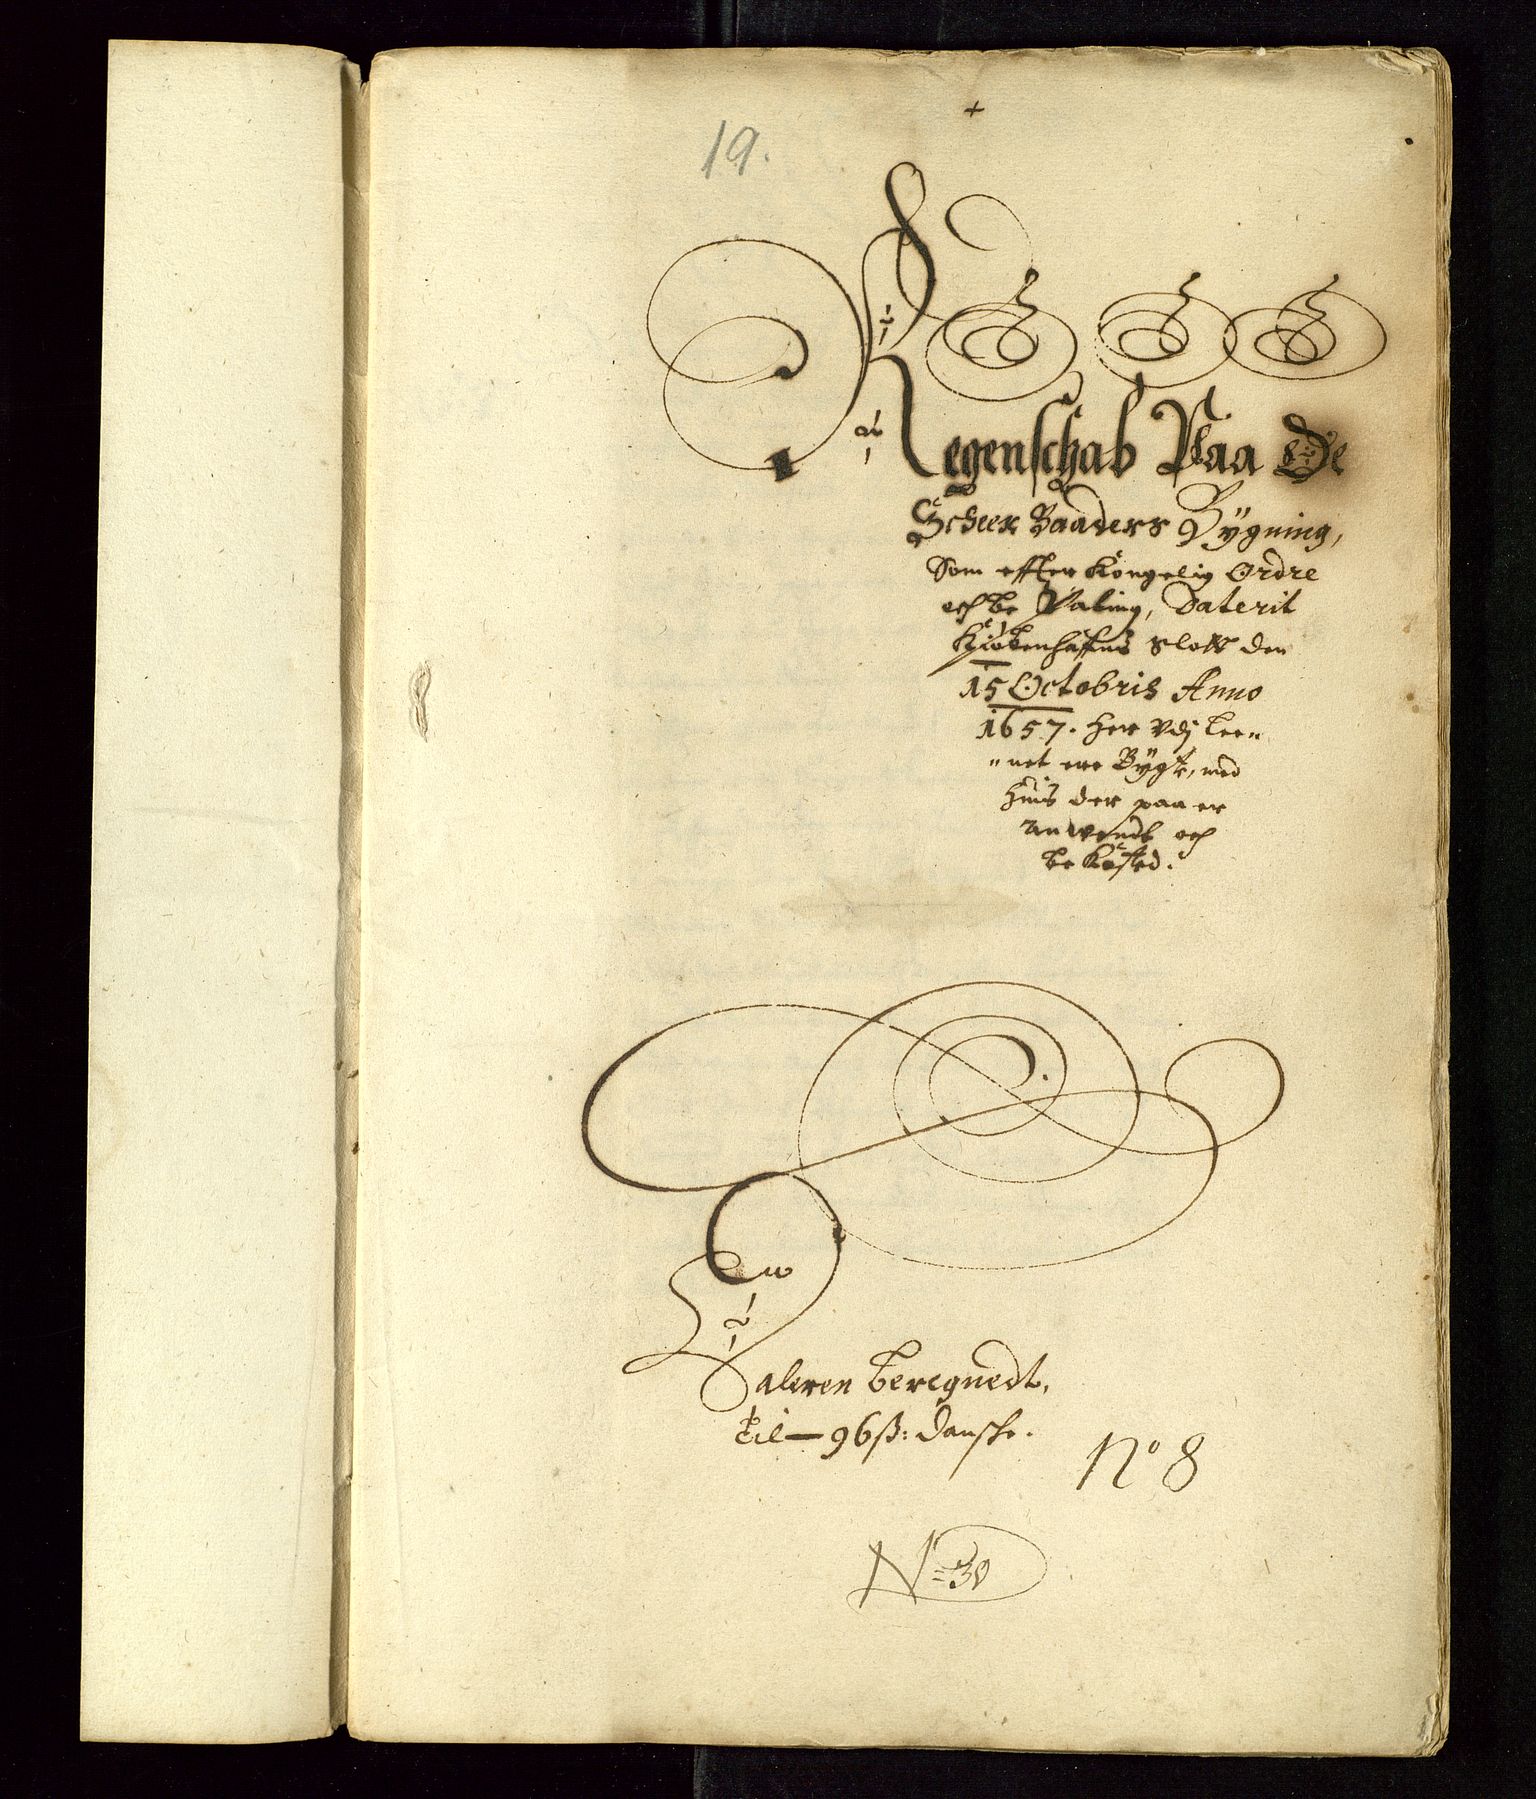 19.
Regenschab Paa De
Scheer Baaders Bygning,
Som effter Kongelig Ordre
och be Paling, Daterit
Kiøbenhaffns Slott den
15 Octobris Anno
1657. her vdj Lee„
„net ere Bygt, med
huis der paa er
anwendt och
be Kosted.
Daleren beregnedt,
til — 96 ß: Danske.
No 8
N = 30